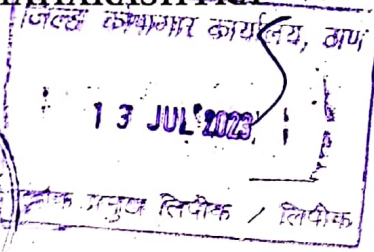 जिल्हा कोषागार कार्यालय, ठाणे
13 JUL 2023
प्रमुख लिपीक / लिपीक